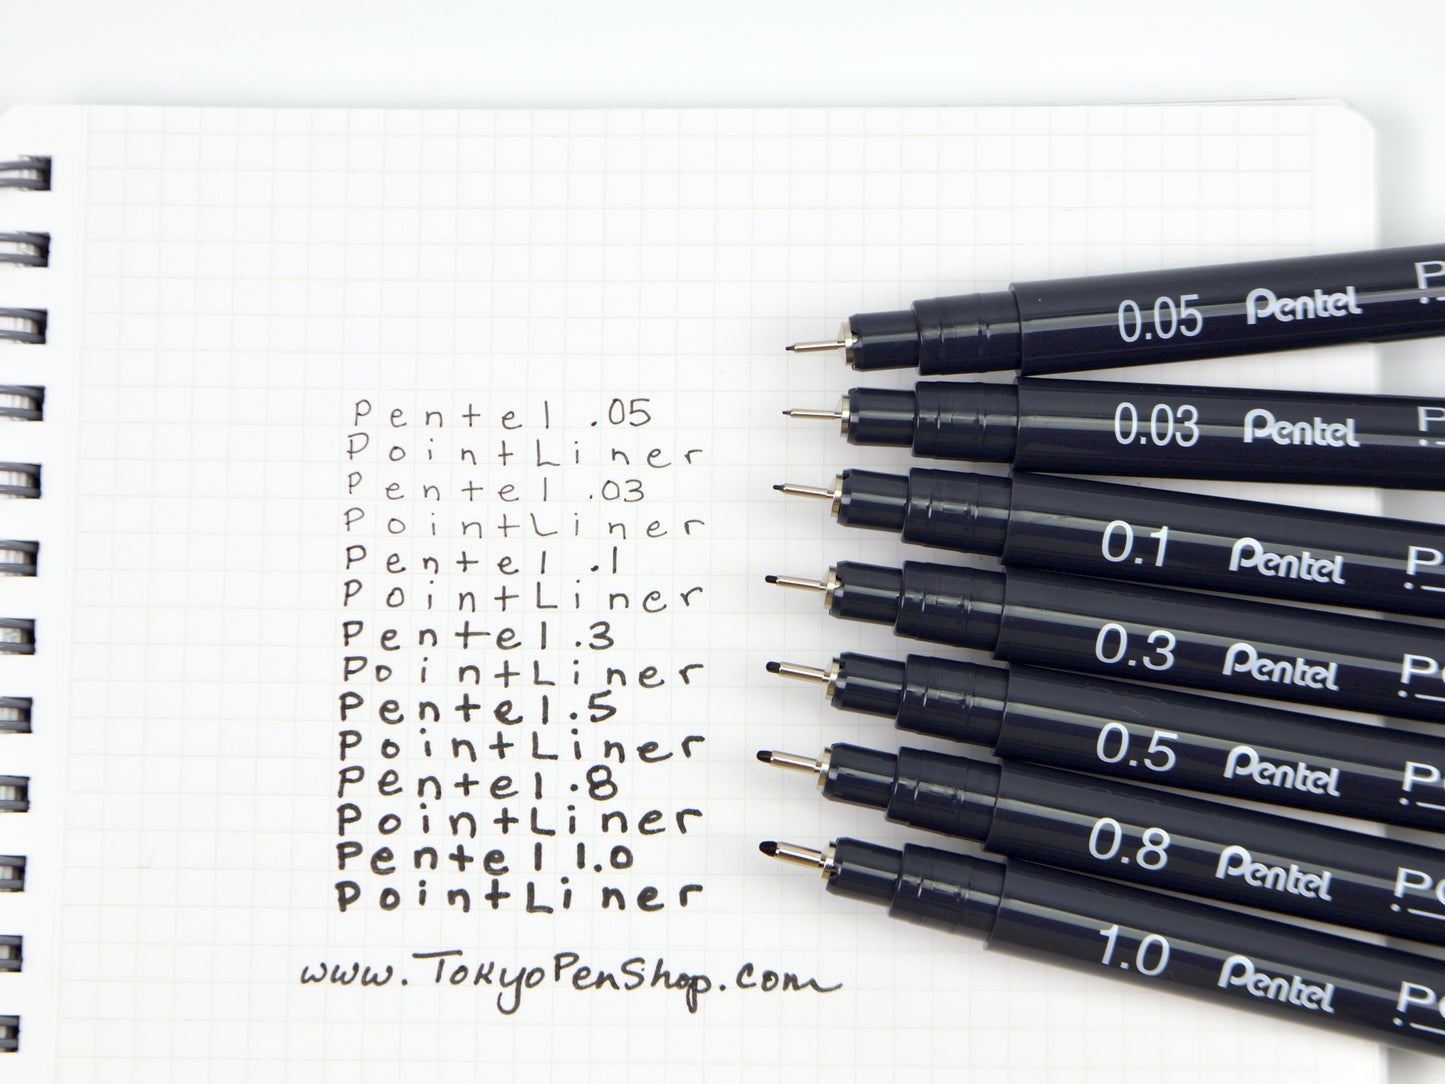 Pentel .05
PointLiner
Pentel .03
PointLiner
Pentel .1
PointLiner
Pentel .3
PointLiner
Pentel .5
PointLiner
Pentel .8
PointLiner
Pentel 1.0
PointLiner
www.TokyoPenShop.com
0.05 Pentel
0.03 Pentel
0.1 Pentel
0.3 Pentel
0.5 Pentel
0.8 Pentel
1.0 Pentel